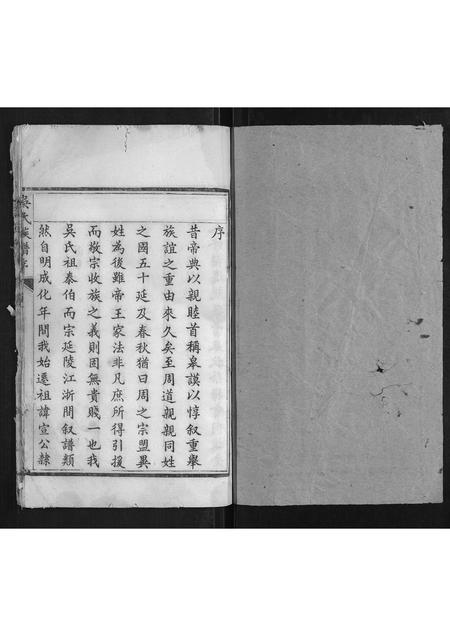 序
昔帝典以親睦首稱皐謨以惇叙重舉
族誼之重由來久矣至周道親親同姓
之國五十延及春秋猶曰周之宗盟異
姓為後雖帝王家法非凡庶所得引援
而敬宗收族之義則固無貴賤一也我
吳氏祖泰伯而宗延陵江浙間叙譜類
然自明成化年間我始遷祖諱宣公隸
吳氏族譜